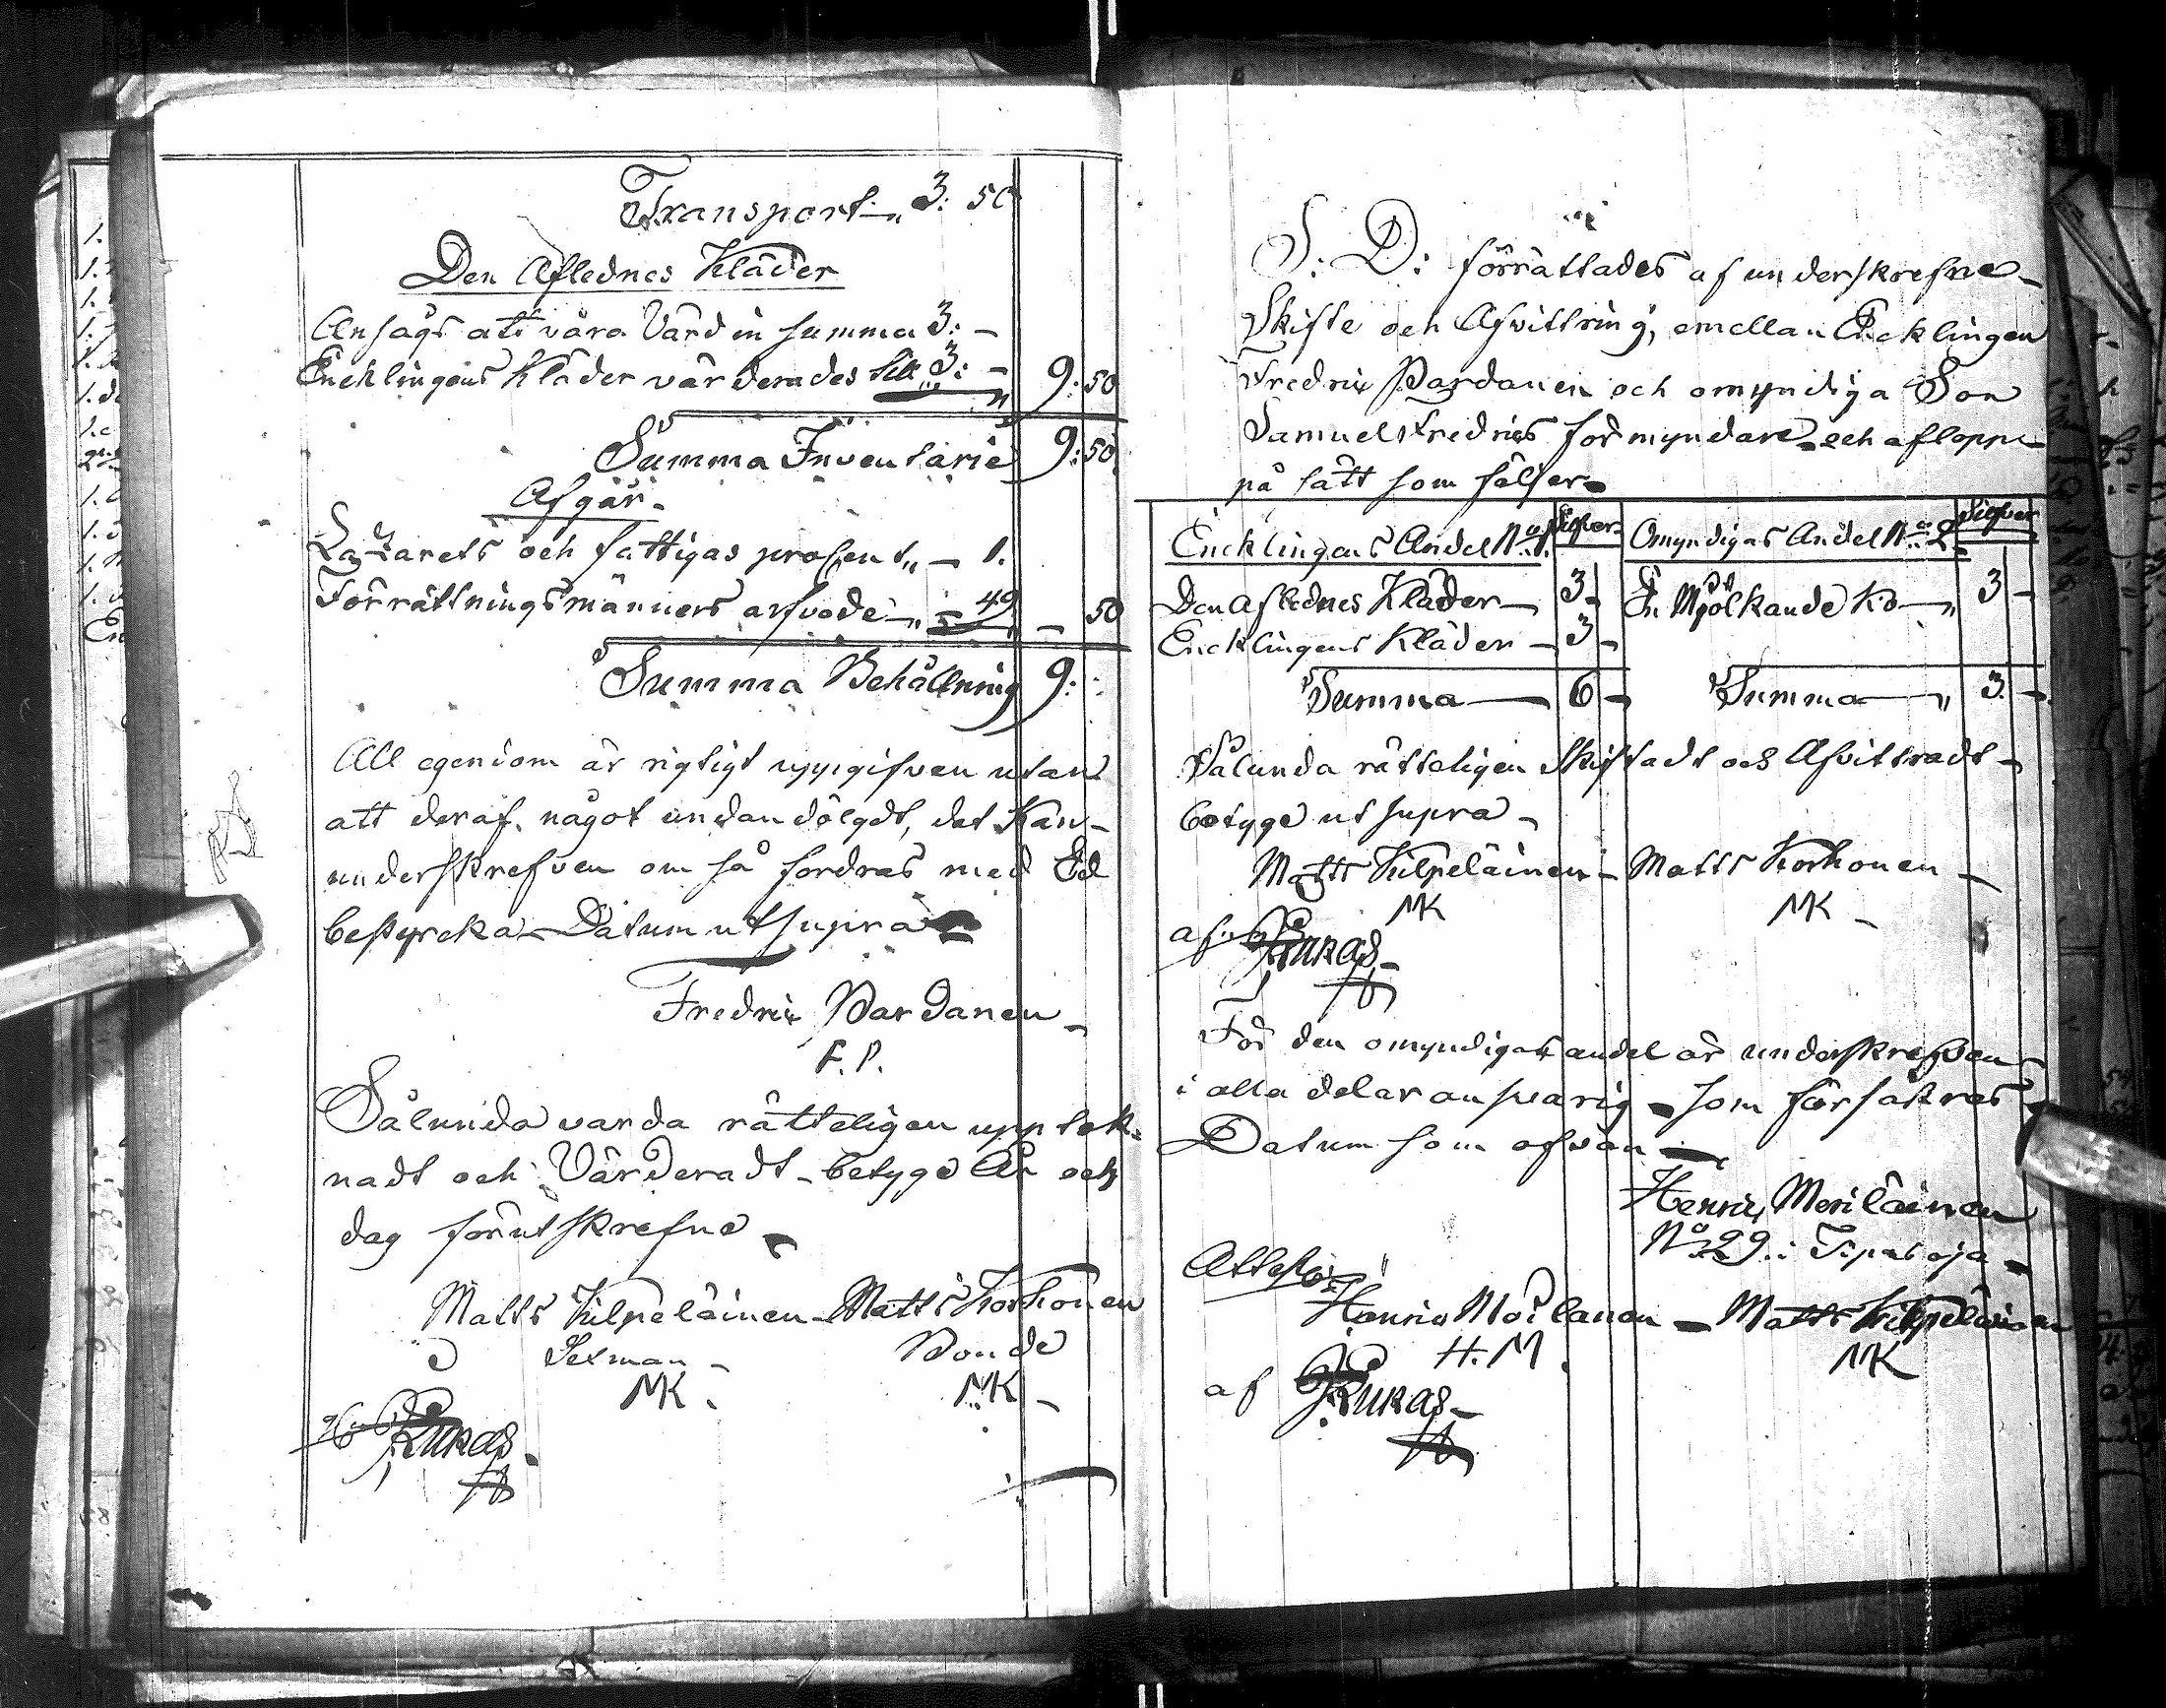 Transport 3: 50
Den Aflednes Kläder
Ansågs att vara Värd in summa 3: -
Encklingens Kläder värderades till 3: - 9: 50
Summa Inventarie 9: 50
Afgår
Lazarets och fattigas procent - 1.
Förrättningsmänners arfvode - 49 - 50
Summa Behållning 9:
All egendom är rigtigt uppgifven utan
att deraf något undandölgdt, det Kan
underskrefven om så fordras med Ed
bestyrcka Datum ut supra
Fredric Pardanen
F. P.
Sålunda varda rätteligen uppték-
nadt och Värderadt betyge År och
dag förutskrefne
Matts Kilpeläinen Matts Korhonen
Sexman Bonde
MK MK
Kukas
S: D: förrättades af underskrefne
Skifte och Afvittring, emellan Encklingen
Fredric Pardanen och omyndiga Son
Samuel Fredrics formyndare och aflopp
på sätt som följer
Encklingens Andel No 1. Silfver Omyndigas Andel No 2 Silfver
Den aflednes Kläder 3 - En Mjölkande Ko 3 -
Encklingens Kläder 3 -
Summa 6 - Summa 3 -
Sålunda rätteligen Skiftadt och Afvittradt
betyge ut supra
Matts Kilpeläinen Matts Korhonen
MK MK
af Kukas
För den omyndigas andel är underskrefven
i alla delar ansvarig som försäkras
Datum som ofvan
Henric Meriläinen
No 29 i Tipasoja
Attestera
Henric Moilanen Matts Kilpeläinen
H. M MK
af Kukas